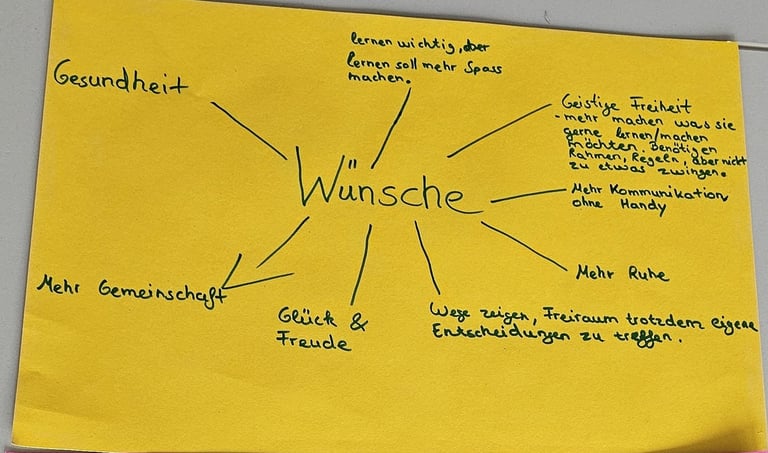 lernen wichtig, aber
lernen soll mehr Spass
machen.
Gesundheit
Geistige Freiheit
- mehr machen was sie
gerne lernen/machen
möchten. Benötigen
Rahmen, Regeln, aber nicht
zu etwas zwingen.
Wünsche
Mehr Kommunikation
ohne Handy
Mehr Ruhe
Mehr Gemeinschaft
Glück &
Freude
Wege zeigen, Freiraum trotzdem eigene
Entscheidungen zu treffen.